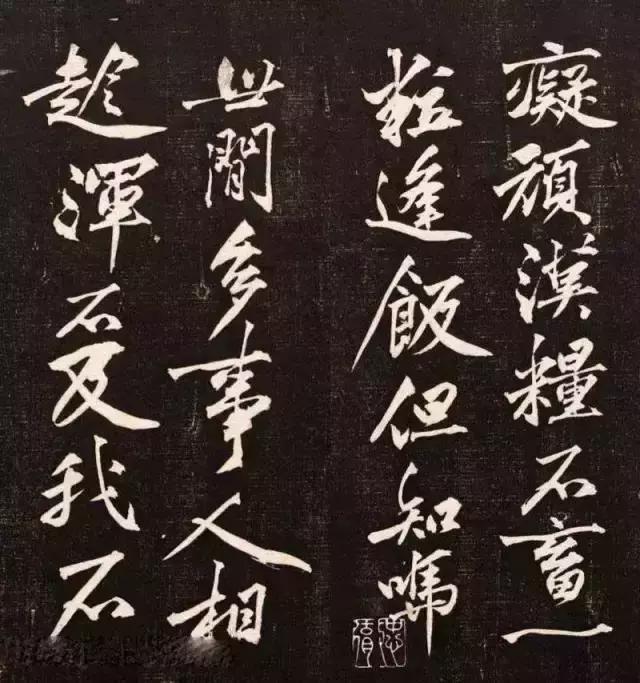 癡頑漢糧不畜一
粒逢飯但知嗎
世閒多事人相
趁渾不及我不